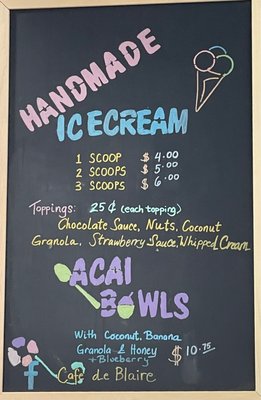 HANDMADE
ICECREAM
1 SCOOP $4.00
2 SCOOPS $5.00
3 SCOOPS $6.00
Toppings: 25¢ (each topping)
Chocolate Sauce, Nuts, Coconut
Granola, Strawberry Sauce, Whipped Cream
ACAI
BOWLS
With Coconut, Banana
Granola & Honey $10.75
+ Blueberry
f Café de Blaire